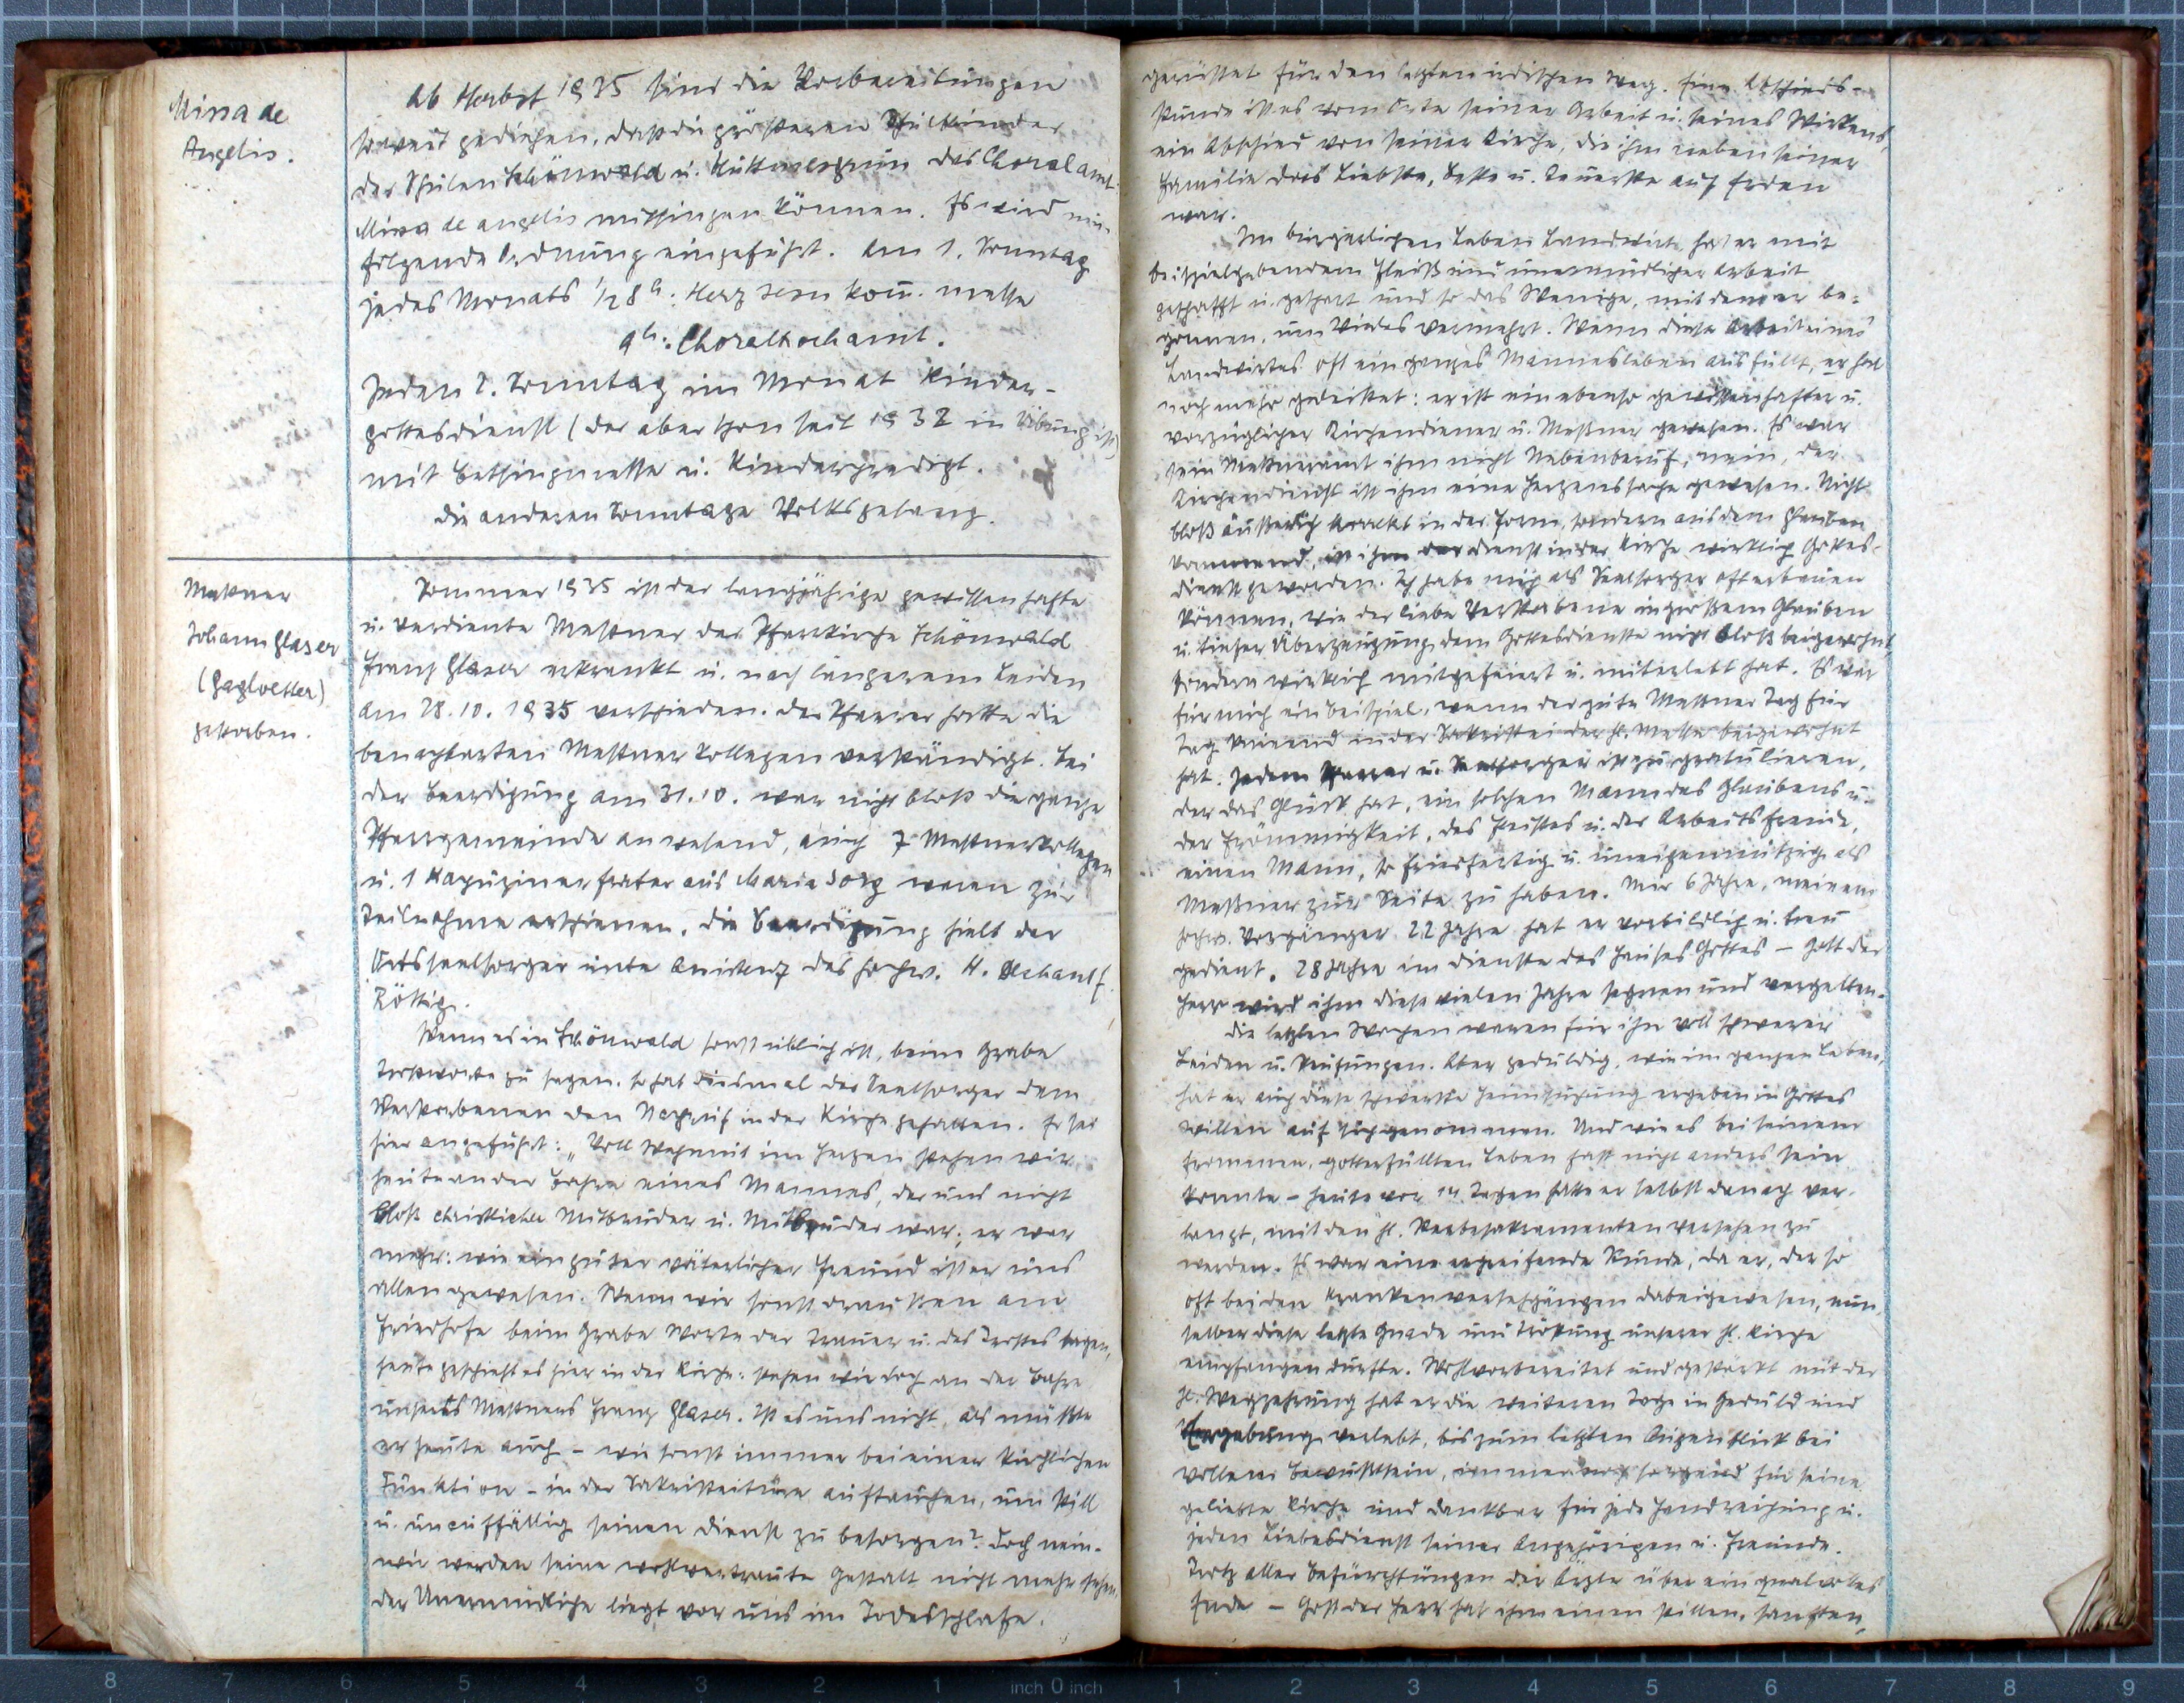 Missa de
Angelis.
Ab Herbst 1935 sind die Vorbereitungen
soweit gediehen, daß die größeren Schulkinder
der Schulen Schönwald u. Hüttmesgrün das Choralamt
Missa de angelis mitsingen können. Es wird nun
folgende Ordnung eingeführt. Am 1. Sonntag
jedes Monats 1/2 8 h: Herz Jesu Kom. messe
9 h: Choralhochamt.
Jeden 2. Sonntag im Monat Kinder-
gottesdienst (der aber schon seit 1932 in Übung ist)
mit Betsingmesse u. Kinderpredigt.
Die anderen Sonntage Volksgesang.
Meßner
Johann Glaser
gestorben.
Sommer 1935 ist der langjährige gewissenhafte
u. verdiente Meßner der Pfarrkirche Schönwald
Franz Glaser erkrankt u. nach längerem Leiden
am 28.10.1935 verschieden. Der Pfarrer hatte die
benachbarten Meßnerkollegen verständigt. Bei
der Beerdigung am 31.10. war nicht bloß die ganze
Pfarrgemeinde anwesend, auch 7 Meßnerkollegen
u. 1 Kapuzinerfrater aus Maria Sorg waren zur
Teilnahme erschienen. Die Beerdigung hielt der
Ortsseelsorger unter Assistenz des hochw. H. Dechant
Röttig.
Wenn es in Schönwald sonst üblich ist, beim Grabe
Trostworte zu sagen, so hat diesmal der Seelsorger dem
Verstorbenen den Nachruf in der Kirche gehalten. Er sei
hier angeführt: „Voll Wehmut im Herzen stehen wir
heute an der Bahre eines Mannes, der uns nicht
bloß christlicher Mitbruder u. Mitbruder war; er war
mehr: wie ein guter väterlicher Freund ist er uns
allen gewesen. Wenn wir sonst draußen am
Friedhofe beim Grabe Worte der Trauer u. des Trostes sagen,
heute geschieht es hier in der Kirche: stehen wir doch an der Bahre
unseres Meßners Franz Glaser. Ist es uns nicht, als müßte
er heute auch – wie sonst immer bei einer kirchlichen
Funktion – in der Sakristeitüre auftauchen, um still
u. unauffällig seinen Dienst zu besorgen? Doch nein –
wir werden seine wohlvertraute Gestalt nicht mehr sehen,
der Unermüdliche liegt vor uns im Todesschlafe.
gerüstet für den letzten irdischen Weg. Eine Abschieds-
stunde ist es vom Orte seiner Arbeit u. seines Wirkens,
ein Abschied von seiner Kirche, die ihm neben seiner
Familie das Liebste, Beste u. Teuerste auf Erden
war.
Im bürgerlichen Leben Landwirt, hat er mit
beispielgebendem Fleiß und unermüdlicher Arbeit
geschafft u. gespart und so das Wenige, mit dem er be-
gonnen, um Vieles vermehrt. Wenn diese Arbeit eines
Landwirtes oft ein ganzes Mannesleben ausfüllt, er hat
noch mehr geleistet: er ist ein ebenso gewissenhafter u.
vorzüglicher Kirchendiener u. Meßner gewesen. Es war
sein Meßneramt ihm nicht Nebenberuf, nein, der
Kirchendienst ist ihm eine Herzenssache gewesen. Nicht
bloß äußerlich korrekt in der Form, sondern aus dem Glauben
kommend, ist ihm der Dienst in der Kirche wirklich Gottes-
dienst geworden. Ich habe mich als Seelsorger oft erbauen
können, wie der liebe Verstorbene in großem Glauben
u. tiefer Überzeugung dem Gottesdienste nicht bloß beigewohnt,
sondern wirklich mitgefeiert u. miterlebt hat. Es war
für mich ein Beispiel, wenn der gute Meßner Tag für
Tag knieend in der Sakristei der hl. Messe beigewohnt
hat. Jedem Pfarrer u. Seelsorger ist zu gratulieren,
der das Glück hat, ein solchen Mann des Glaubens u.
der Frömmigkeit, des Fleißes u. der Arbeitsfreude,
einen Mann, so friedfertig u. uneigennützig als
Meßner zur Seite zu haben. Mir 6 Jahre, meinem
hochw. Vorgänger 22 Jahre hat er vorbildlich u. treu
gedient. 28 Jahre im Dienste des Hauses Gottes – Gott der
Herr wird ihm diese vielen Jahre segnen und vergelten.
Die letzten Wochen waren für ihn voll schwerer
Leiden u. Prüfungen. Aber geduldig, wie im ganzen Leben,
hat er auch diese schwerste Heimsuchung ergeben in Gottes
Willen auf sich genommen. Und wie es bei seinem
frommen, gotterfüllten Leben fast nicht anders sein
konnte – heute vor 14 Tagen hatte er selbst danach ver-
langt, mit den hl. Sterbesakramenten versehen zu
werden. Es war eine ergreifende Stunde, da er, der so
oft bei den Krankenversehgängen dabeigewesen, nun
selber diese letzte Gnade und Stärkung unserer hl. Kirche
empfangen durfte. Wohlvorbereitet und gestärkt mit der
hl. Wegzehrung hat er die weiteren Tage in Geduld und
Ergebung verlebt, bis zum letzten Augenblick bei
vollem Bewußtsein, immer noch sorgend für seine
geliebte Kirche und dankbar für jede Handreichung u.
jeden Liebesdienst seiner Angehörigen u. Freunde.
Trotz aller Befürchtungen der Ärzte über ein qualvolles
Ende – Gott der Herr hat ihm einen stillen, sanften,
8 7 6 5 4 3 2 1 inch 0 inch 1 2 3 4 5 6 7 8 9